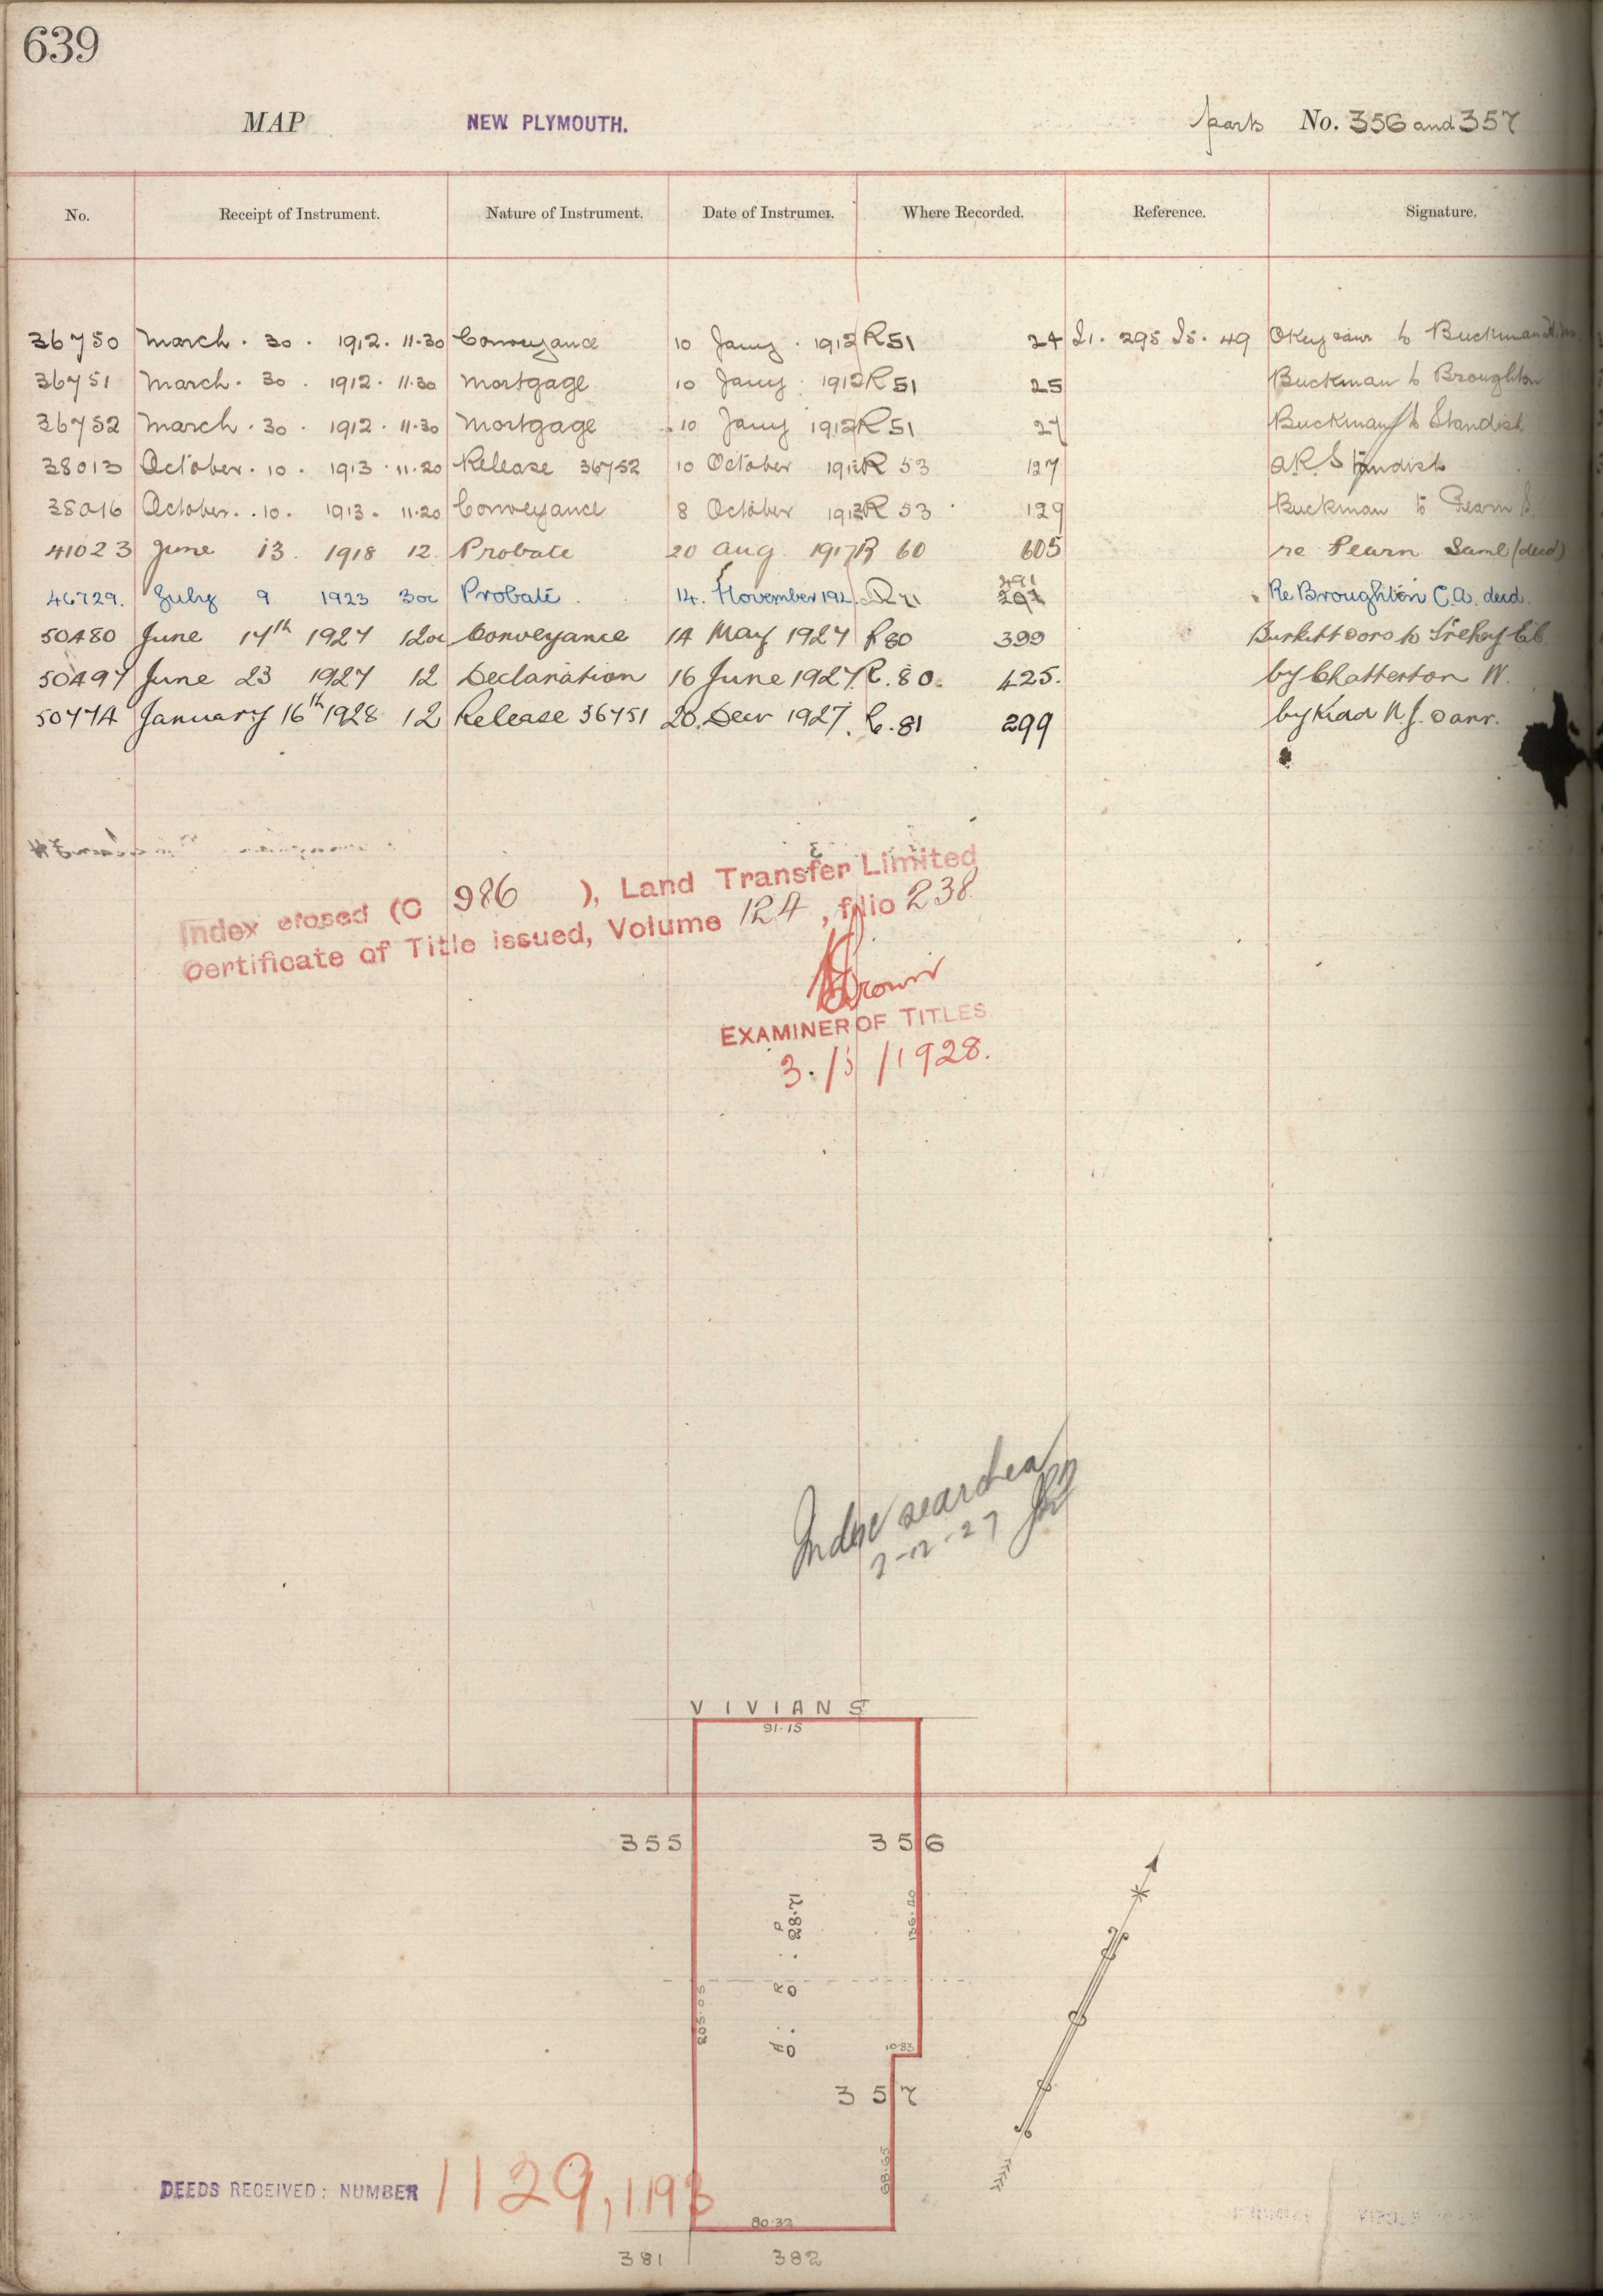 639
MAP NEW PLYMOUTH. parts No. 356 and 357
No. Receipt of Instrument. Nature of Instrument. Date of Instrumen. Where Recorded. Reference. Signature.
36750 March . 30 . 1912 . 11.30 Conveyance 10 Jany . 1912 R 51 24 I1. 295 I5. 49 Okey to Buckman
36751 March . 30 . 1912 . 11.30 Mortgage 10 Jany . 1912 R 51 25 Buckman to Broughton
36752 March . 30 . 1912 . 11.30 Mortgage 10 Jany 1912 R 51 27 Buckman to Standish
38013 October . 10 . 1913 . 11.20 Release 36752 10 October 1913 R 53 127 A.R. Standish
38016 October . 10 . 1913 . 11.20 Conveyance 8 October 1913 R 53 129 Buckman to Pearn S.
41023 June 13 . 1918 12 . Probate 20 Aug 1917 R 60 605 re Pearn Saml (decd)
46729. July 9 1923 Probate 14. November 192 R 71 291 Re Broughton C.A. decd.
50480 June 17th 1927 Conveyance 14 May 1927 R 80 399 Burkitt & ors to
50497 June 23 1927 12 Declaration 16 June 1927. R. 80. 425. by Chatterton W.
50774 January 16th 1928 12 Release 36751 20. Decr 1927. R. 81 299 by N. J. & anr.
Index closed (C 986 ), Land Transfer Limited
Certificate of Title issued, Volume 124, folio 238
Brown
EXAMINER OF TITLES
3. / 3 / 1928.
Index searched
7-12-27
VIVIAN S
91.15
355 356
136.40
A R P
0 : 0 : 28.71
205.05
10.83
357
68.65
DEEDS RECEIVED: NUMBER 1129, 1193
80.32
381 382